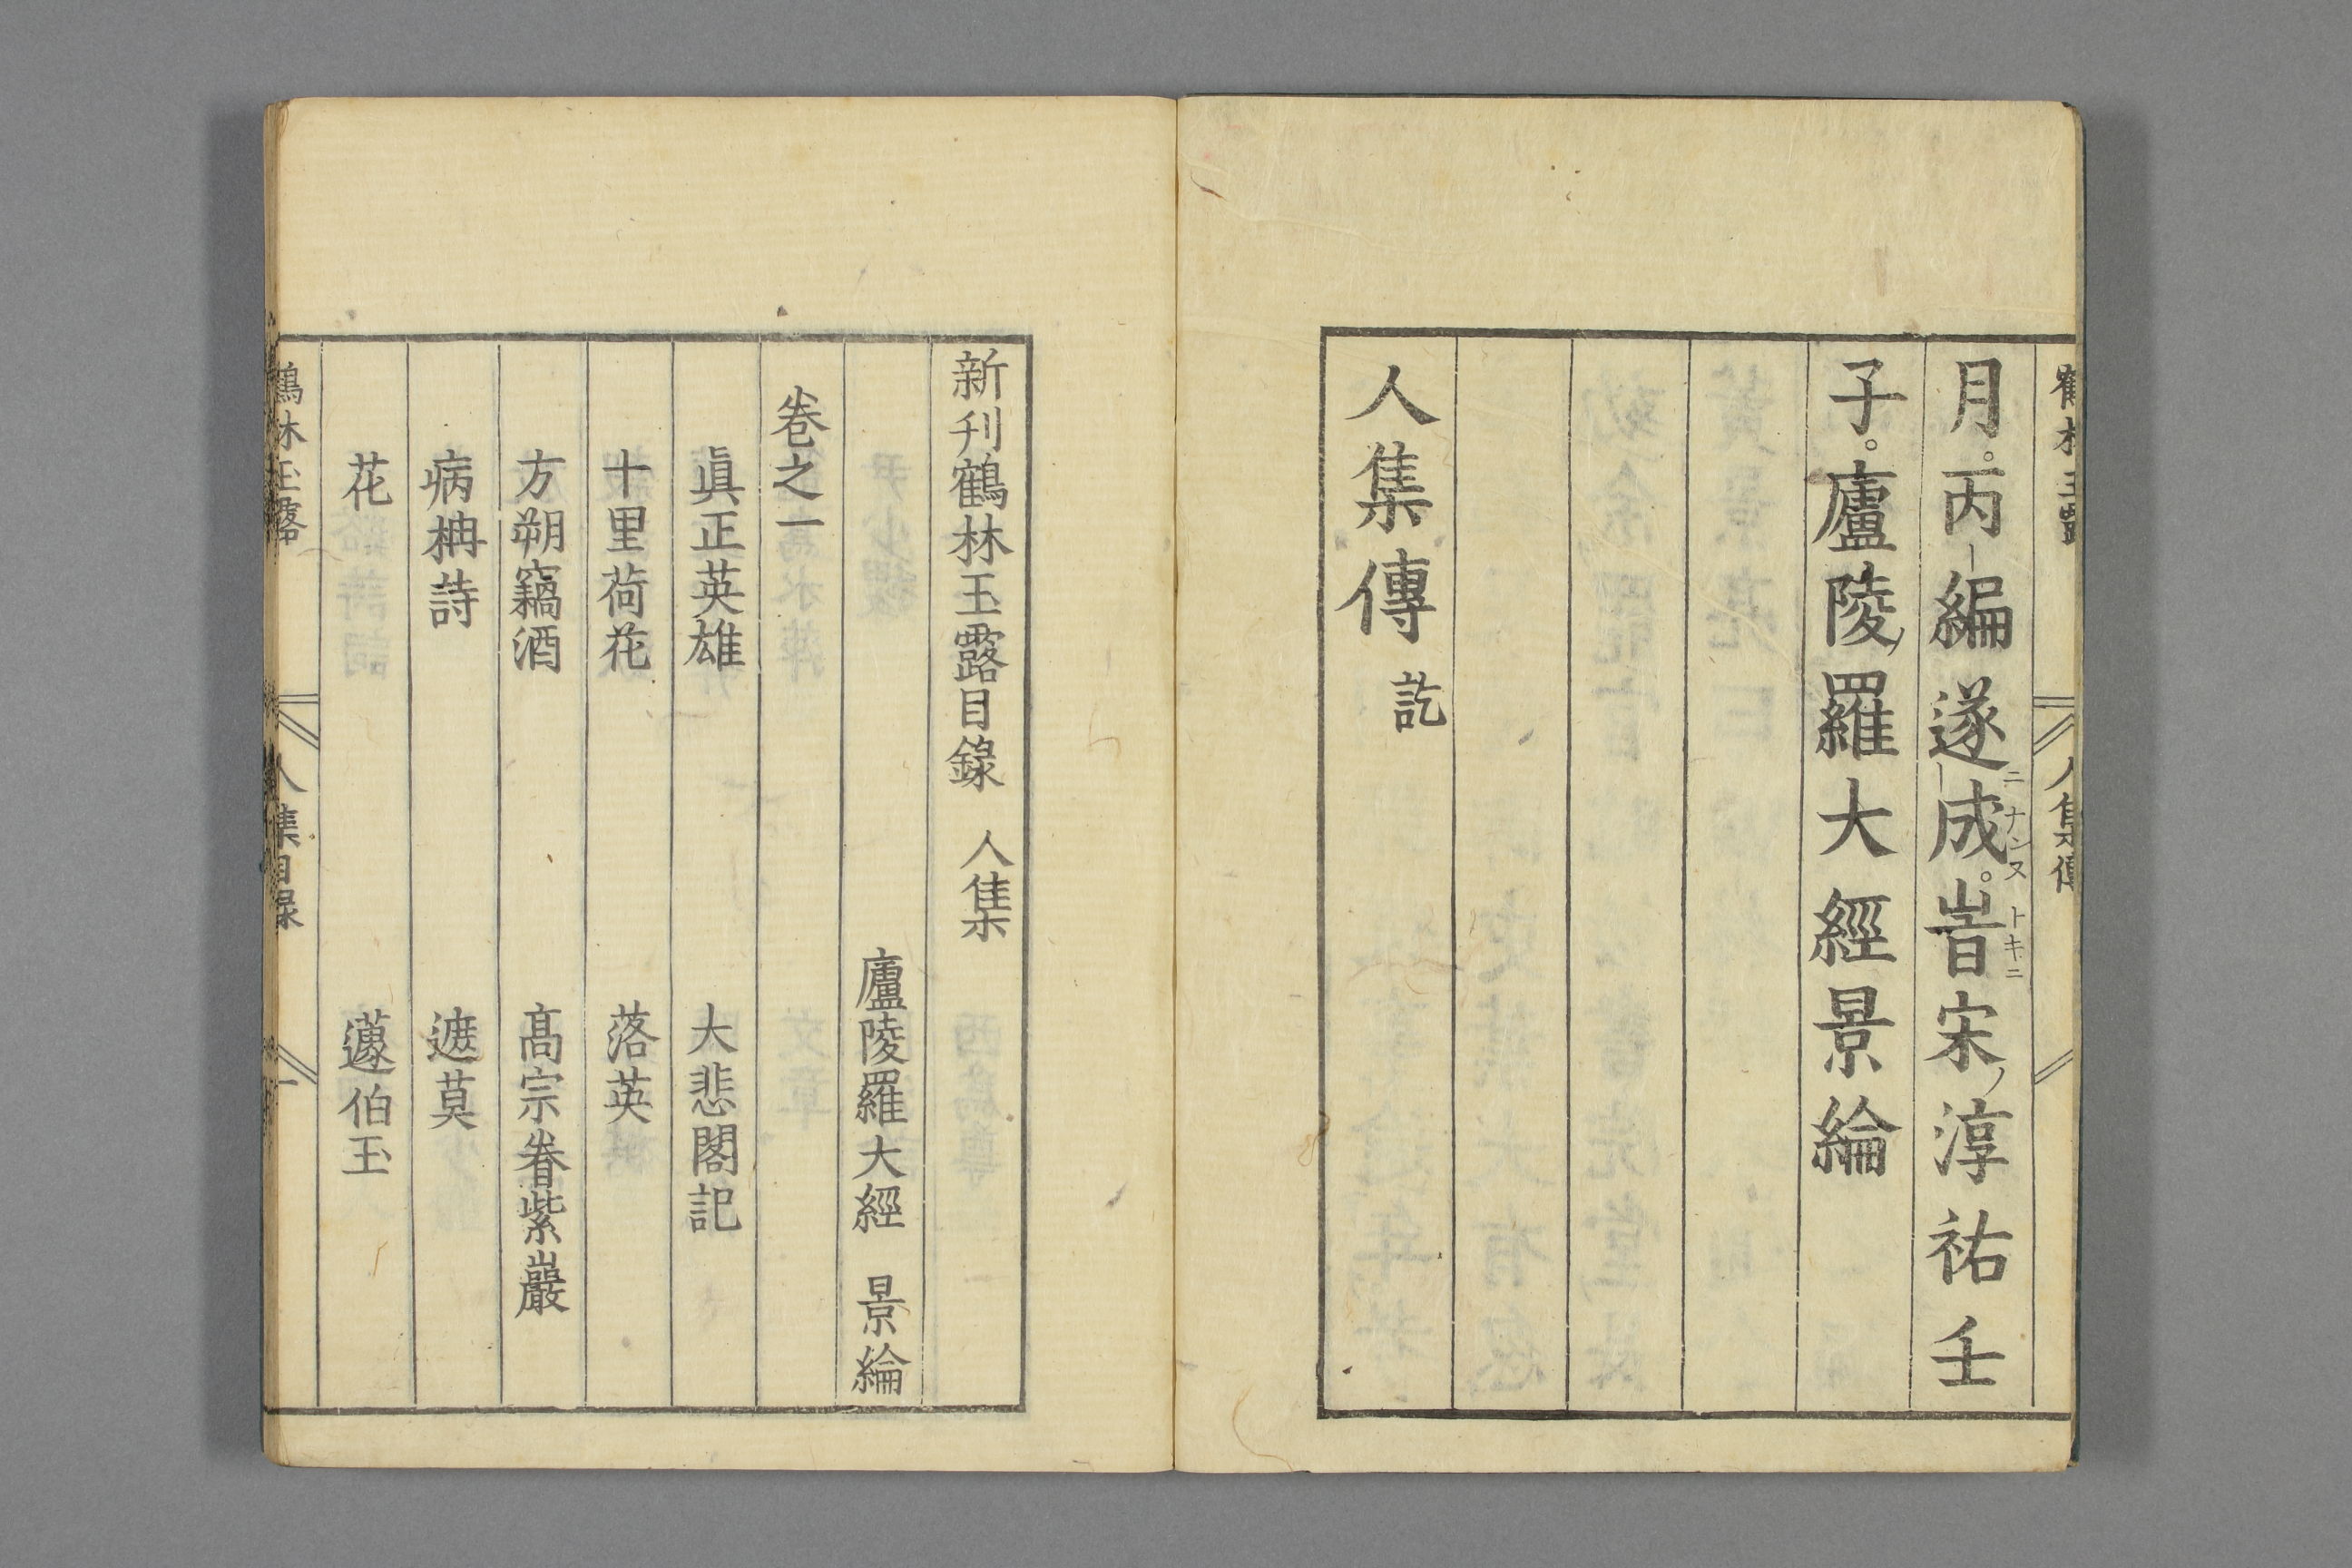 月。丙編遂成。旹宋ノ淳祐壬
ニナンヌ
トキニ
子。廬陵ノ羅大經景綸
人集傳訖
新刊鶴林玉露目錄 人集
廬陵羅大經 景綸
卷之一
眞正英雄 大悲閣記
十里荷花 落英
方朔竊酒 高宗眷紫巖
病柟詩 遮莫
花 蘧伯玉
鶴林玉露 人集目録 一